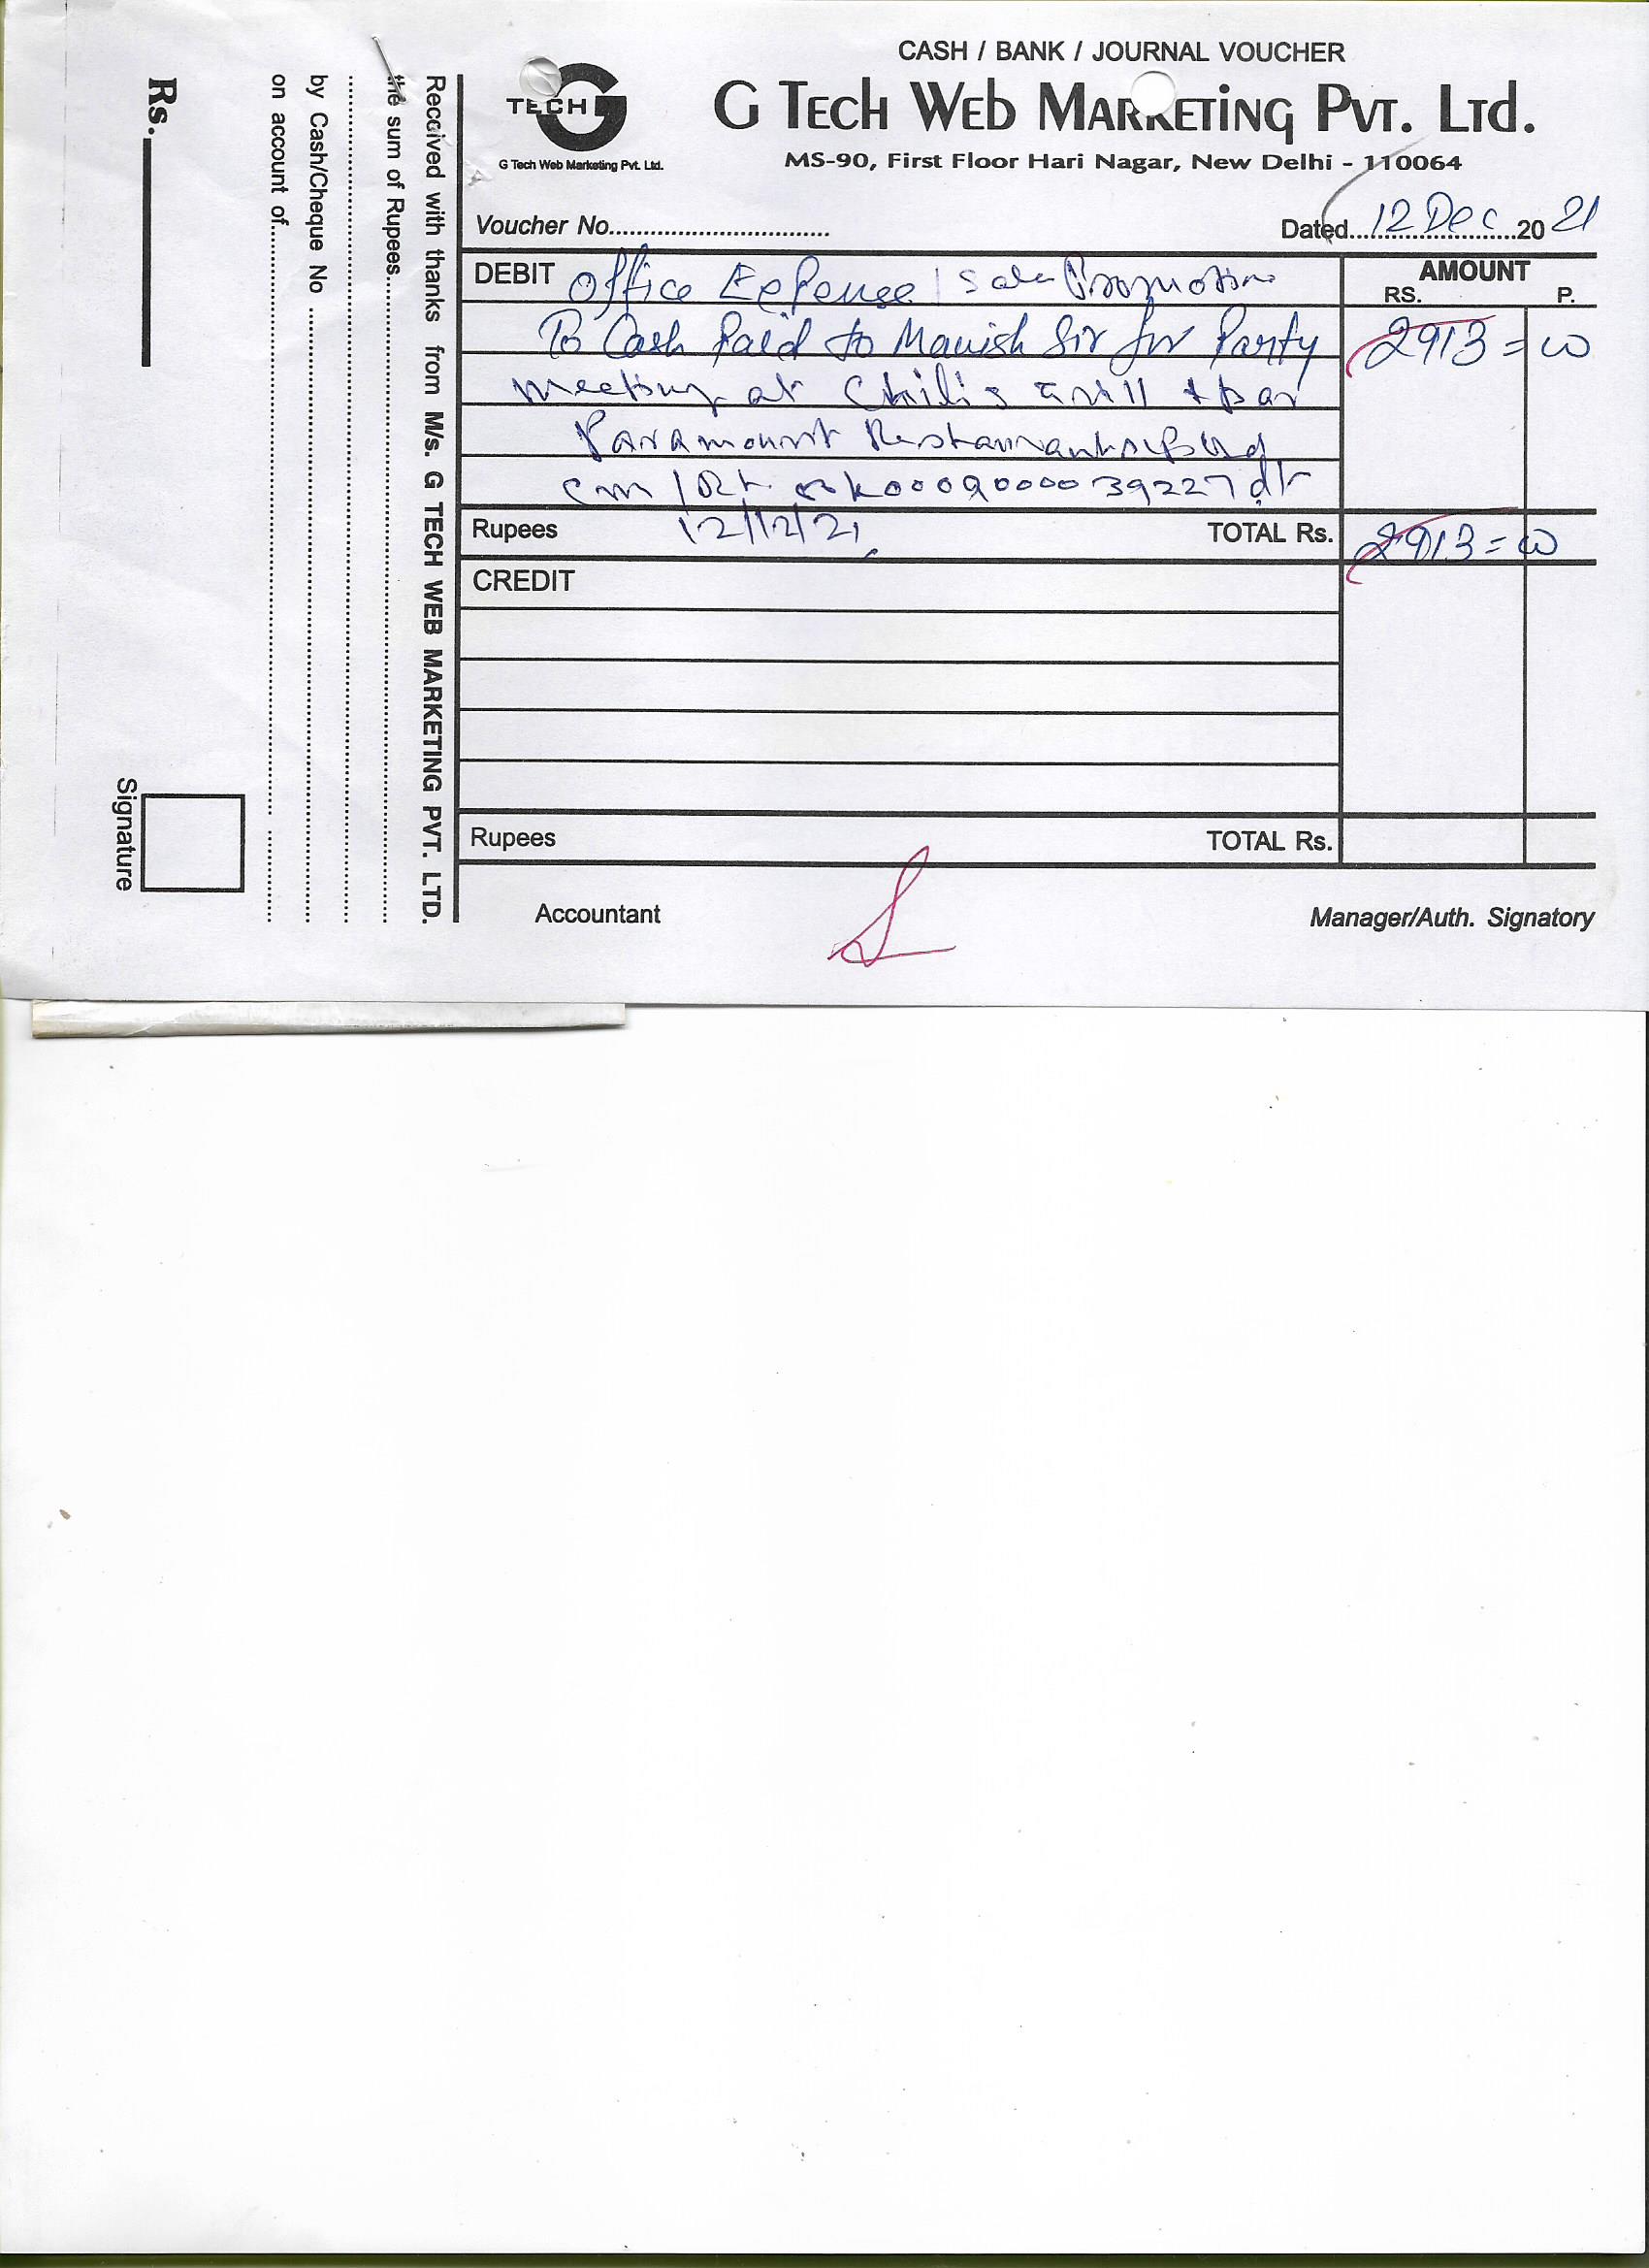 CASH / BANK / JOURNAL VOUCHER
TECH G
G Tech Web Marketing Pvt. Ltd.
G Tech Web Marketing Pvt. Ltd.
MS-90, First Floor Hari Nagar, New Delhi - 110064
Voucher No.............................. Dated...12 Dec...20 21
DEBIT Office Expense / Sale Promotion AMOUNT
RS. P.
To Cash Paid to Manish Sir for Party 2913=00
meeting at Chili's Grill & bar
Paramount Restaurants
39227 dt
Rupees 12/12/21 TOTAL Rs. 2913=00
CREDIT
Rupees TOTAL Rs.
Accountant Manager/Auth. Signatory
Received with thanks from M/s. G TECH WEB MARKETING PVT. LTD.
the sum of Rupees
by Cash/Cheque No
on account of
Rs.
Signature